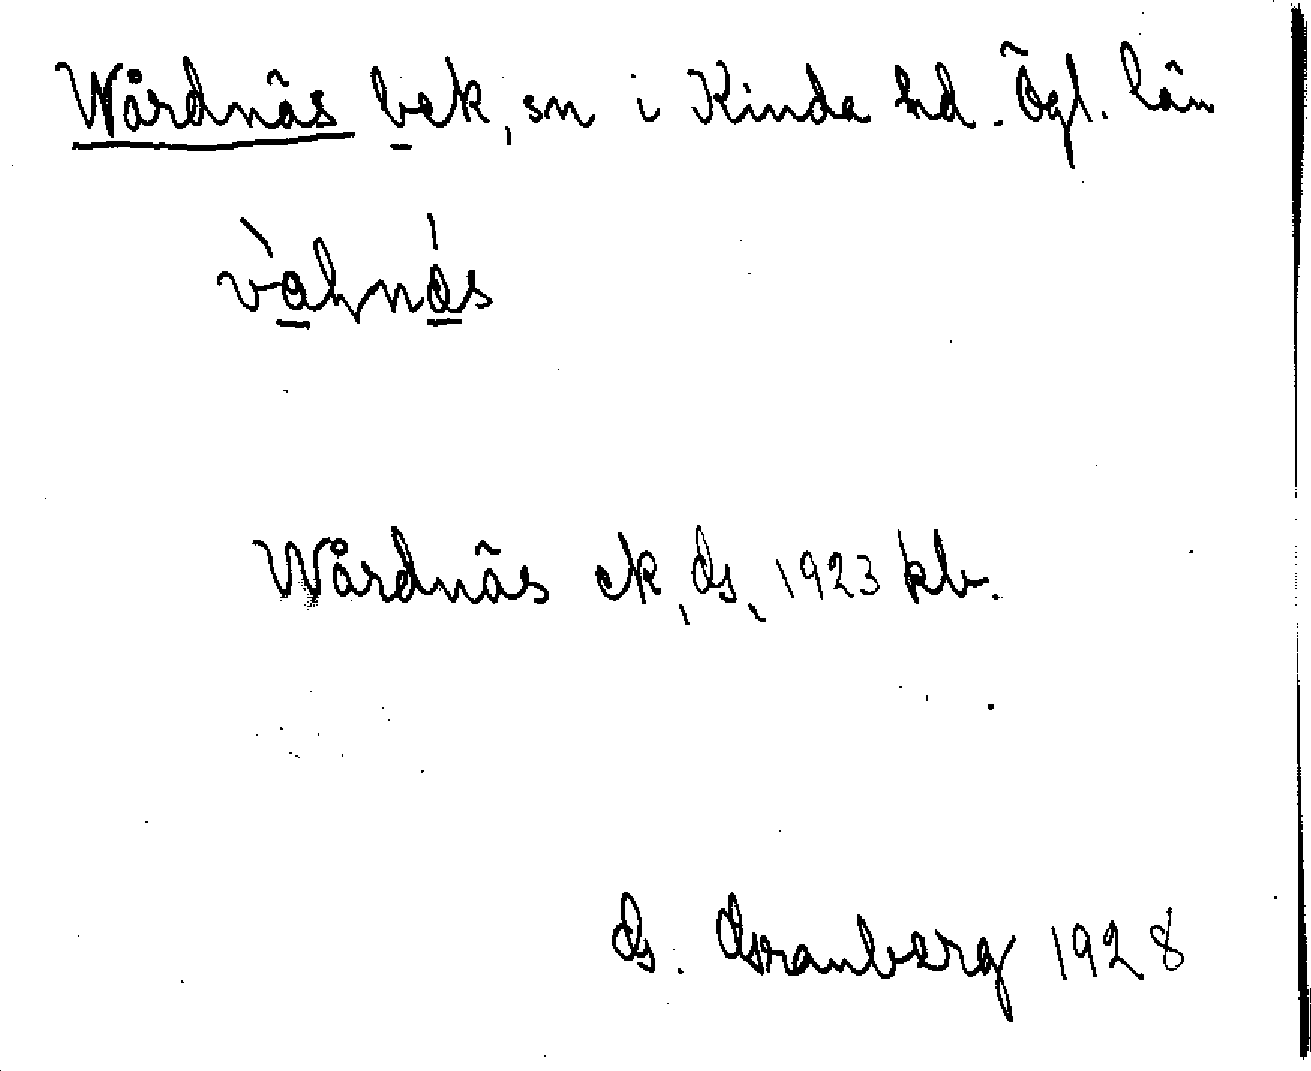 Wårdnäs bek, sn i Kinda hd. Ögl. län
Wårdnäs ek, G, 1923 kb.
G. Granberg 1928